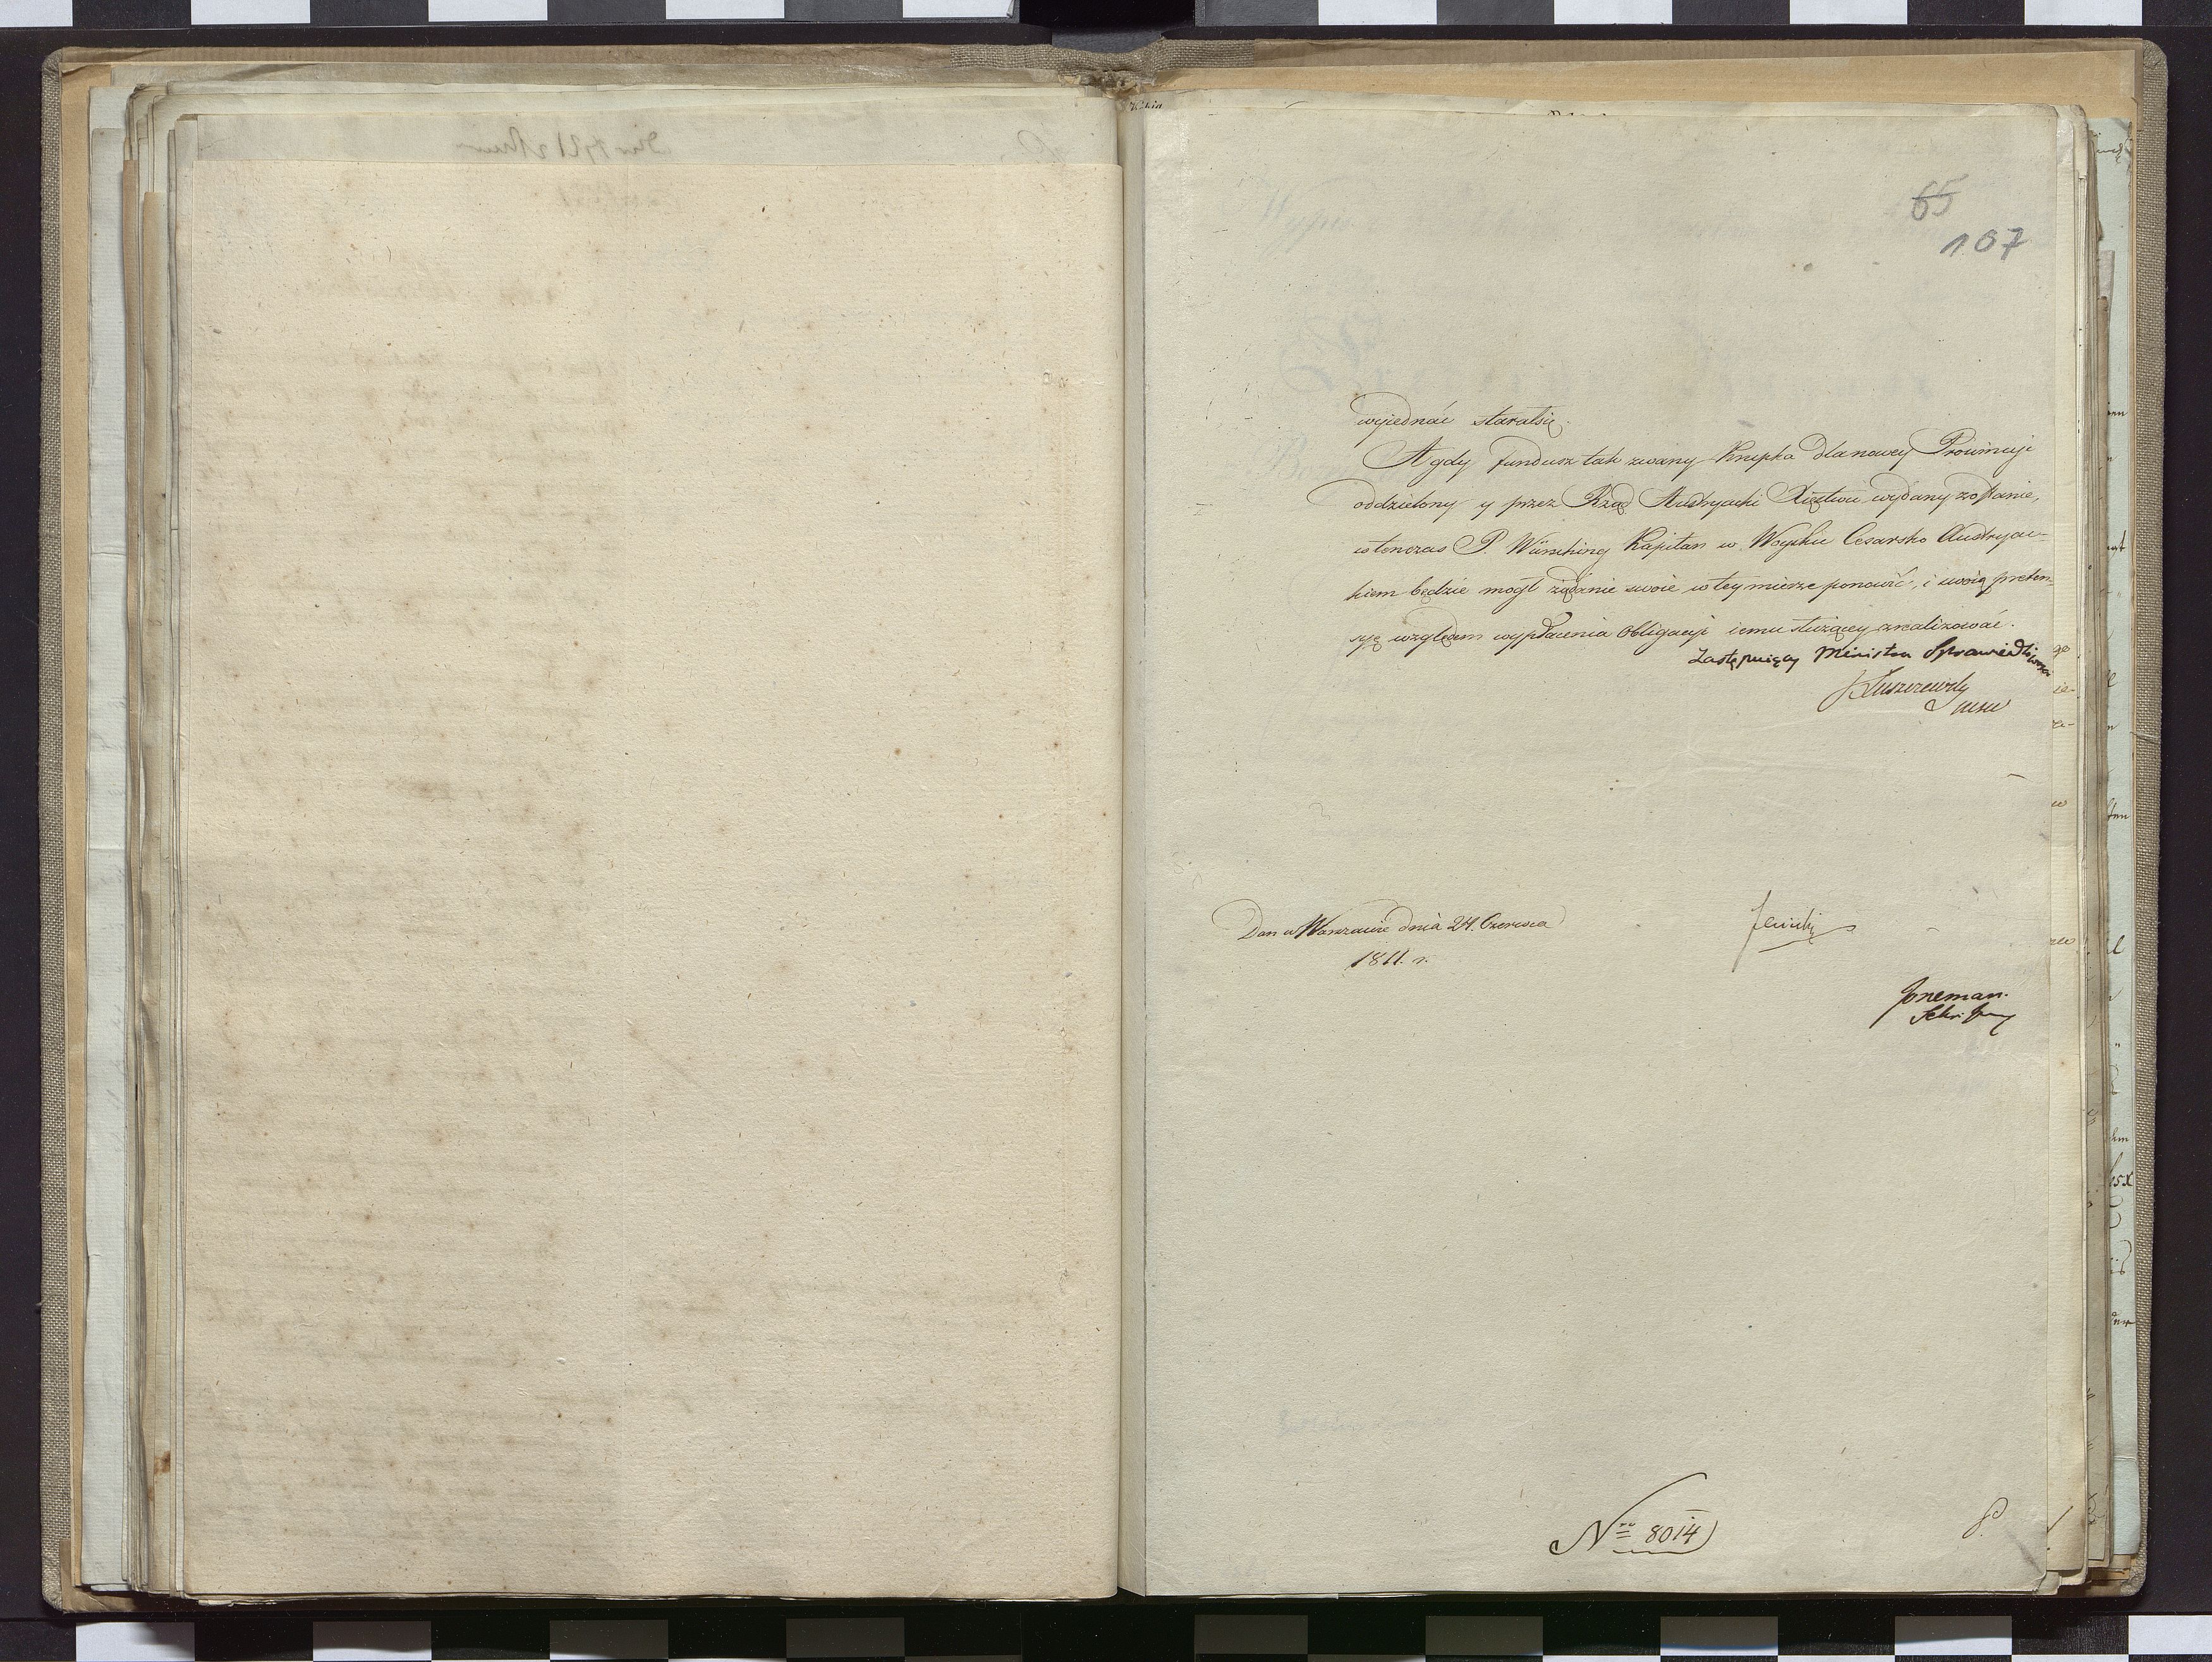 65
107
wyiednać starał się.
A gdy fundusz tak zwany Krepka dla nowey Prowincyi
oddzielony y przez Rząd Austryacki Xięstwu wydany zostanie,
wtenczas P. Würsching Kapitan w Woysku Cesarsko Austryac-
kiem będzie mogł żądanie swoie w tey mierze ponowić, i swoią preten-
syę względem wypłacenia Obligacyi iemu służącey zrealizować.
Zastępuiący Ministra Sprawiedliwości
Łuszczewsky
MSW
Dan w Warszawie dnia 24. Czerwca
1811. r.
Joneman.
No 8014